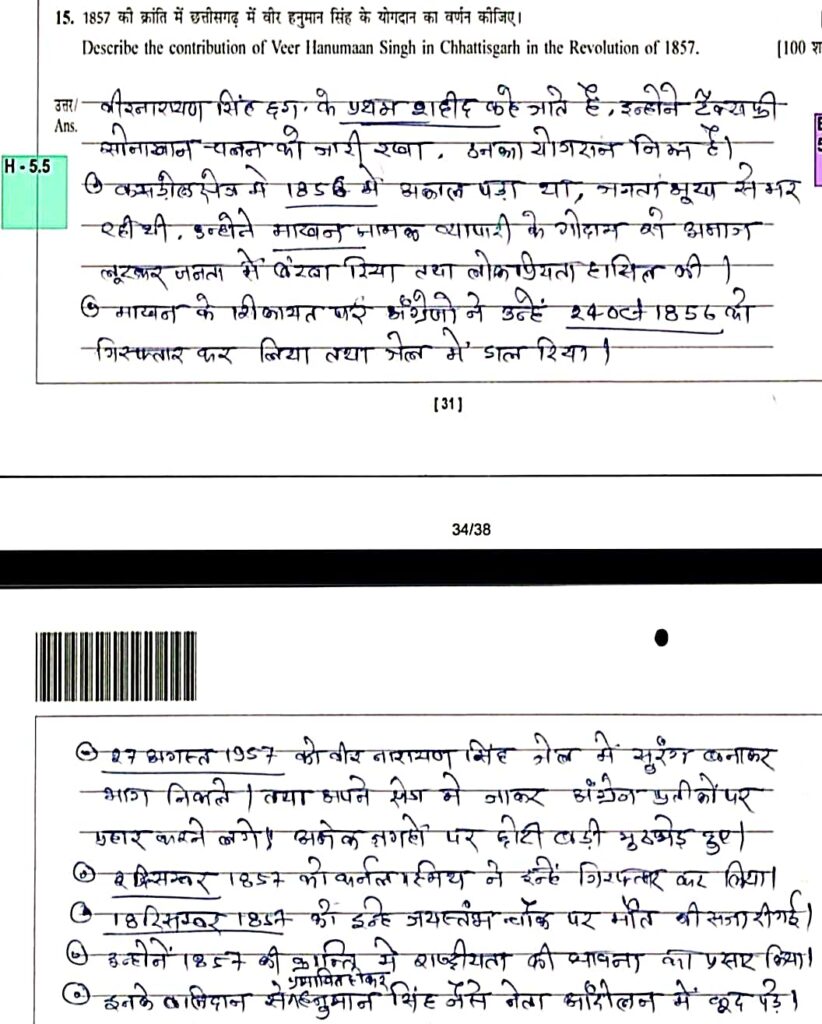 15. 1857 की क्रांति में छत्तीसगढ़ में वीर हनुमान सिंह के योगदान का वर्णन कीजिए।
Describe the contribution of Veer Hanumaan Singh in Chhattisgarh in the Revolution of 1857. [100 श
उत्तर/ वीरनारायण सिंह छग. के प्रथम शहीद कहे जाते है, इन्होने
Ans. सोनाखान को जारी रखा, उनका योगदान निम्न है।
H - 5.5
कसडोल क्षेत्र मे 1856 में अकाल पड़ा था, जनता भूख से मर
रही थी. उन्होने माखन नामक व्यापारी के गोदाम से अनाज
लूटकर जनता में बंटवा दिया तथा लोकप्रियता हासिल की।
माखन के शिकायत पर अंग्रेजो ने उन्हें 24 oct 1856 को
गिरफ्तार कर लिया तथा जेल में डाल दिया।
[31]
34/38
27 अगस्त 1957 को वीर नारायण सिंह जेल में सुरंग बनाकर
भाग निकले। तथा अपने क्षेत्र मे जाकर अंग्रेज प्रतीकों पर
प्रहार करने लगे। अनेक जगहों पर छोटी बड़ी मुठभेड़ हुए।
2 दिसम्बर 1857 को कर्नल स्मिथ ने इन्हें गिरफ्तार कर लिया।
18 दिसम्बर 1857 को इन्हे जयस्तंभ चौक पर मौत की सजा दी गई।
उन्होनें 1857 की क्रान्ति मे राष्ट्रीयता की भावना का प्रसार किया।
इनके बलिदान से प्रभावित होकर हनुमान सिंह जैसे नेता आंदोलन में कूद पड़े।